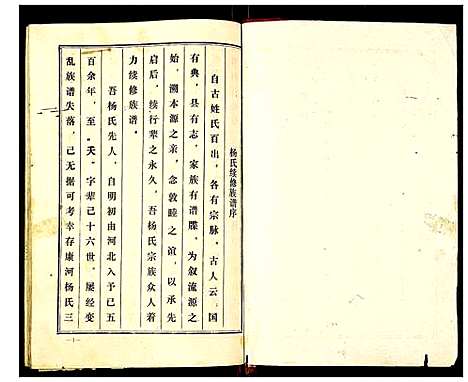 杨氏续修族谱序
自古姓氏百出，各有宗脉，古人云，国
有典，县有志，家族有谱牒，为叙流源之
始，溯本源之亲，念敦睦之谊，以承先
启后，续行辈之永久，吾杨氏宗族众人着
力续修族谱。
吾杨氏先人，自明初由河北入予已五
百余年，至“天”字辈已十六世，屡经变
乱族谱失落，已无据可考幸存康河杨氏三
—1—